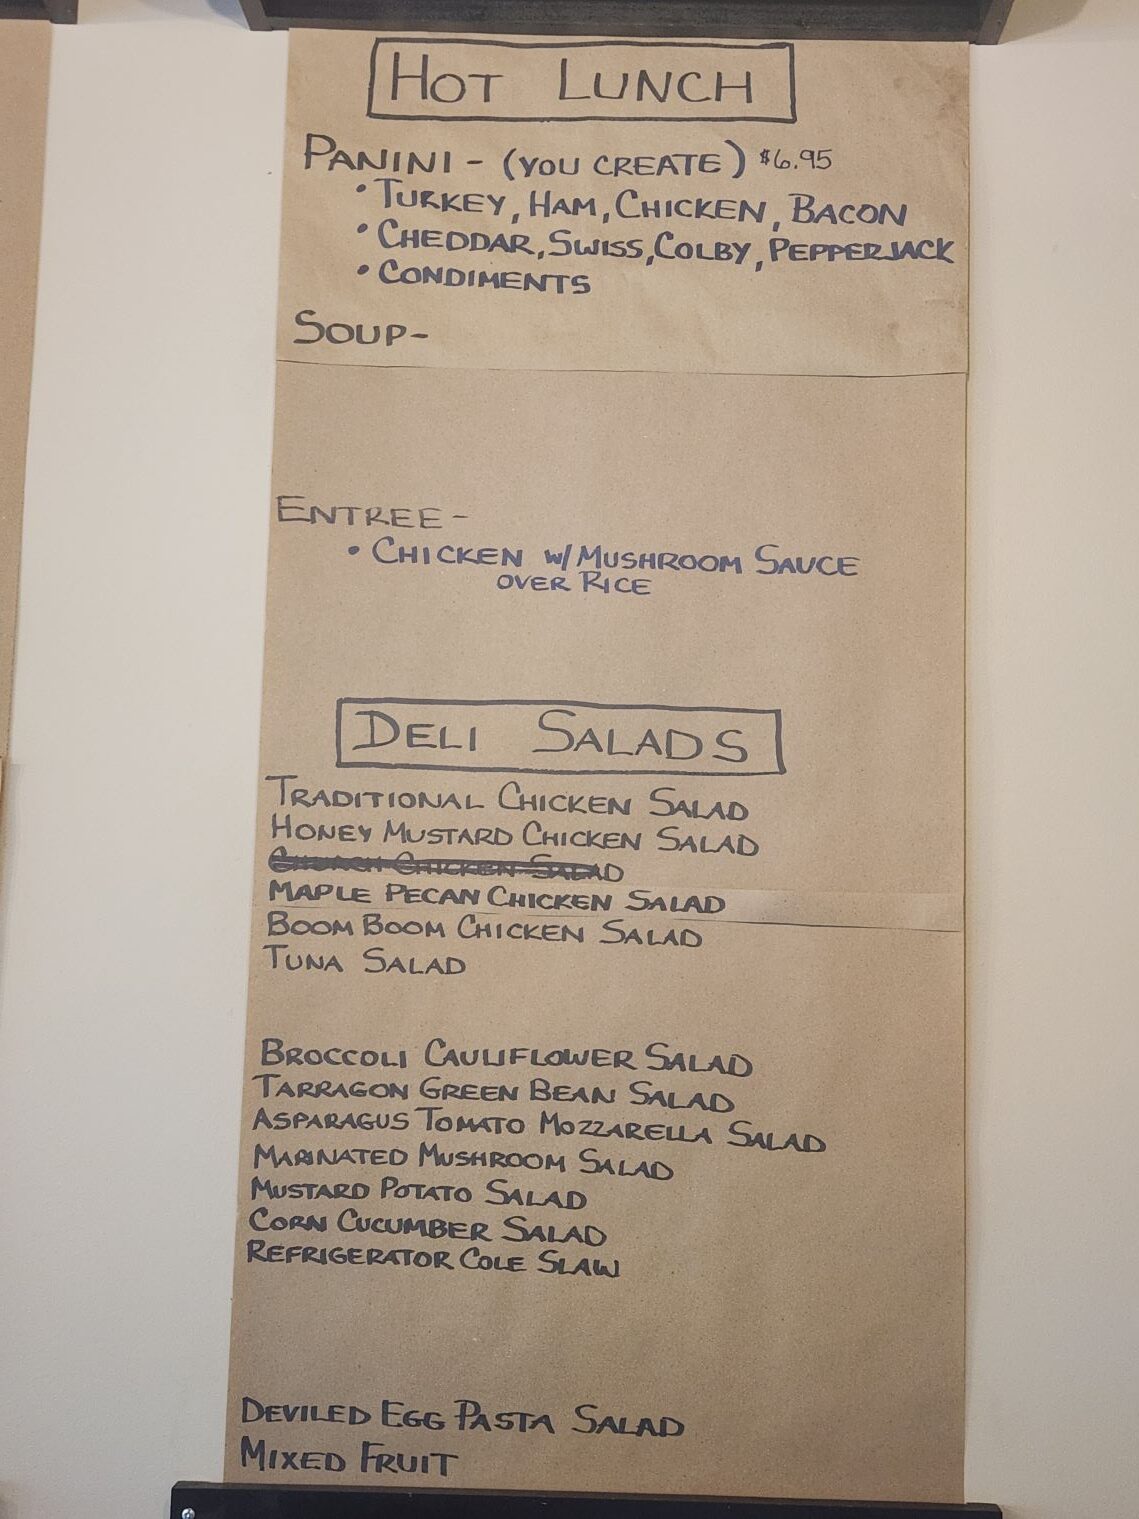 HOT LUNCH
PANINI - (YOU CREATE) $6.95
• TURKEY, HAM, CHICKEN, BACON
• CHEDDAR, SWISS, COLBY, PEPPERJACK
• CONDIMENTS
SOUP-
ENTREE-
• CHICKEN W/ MUSHROOM SAUCE
OVER RICE
DELI SALADS
TRADITIONAL CHICKEN SALAD
HONEY MUSTARD CHICKEN SALAD
CHICKEN SALAD
MAPLE PECAN CHICKEN SALAD
BOOM BOOM CHICKEN SALAD
TUNA SALAD
BROCCOLI CAULIFLOWER SALAD
TARRAGON GREEN BEAN SALAD
ASPARAGUS TOMATO MOZZARELLA SALAD
MARINATED MUSHROOM SALAD
MUSTARD POTATO SALAD
CORN CUCUMBER SALAD
REFRIGERATOR COLE SLAW
DEVILED EGG PASTA SALAD
MIXED FRUIT